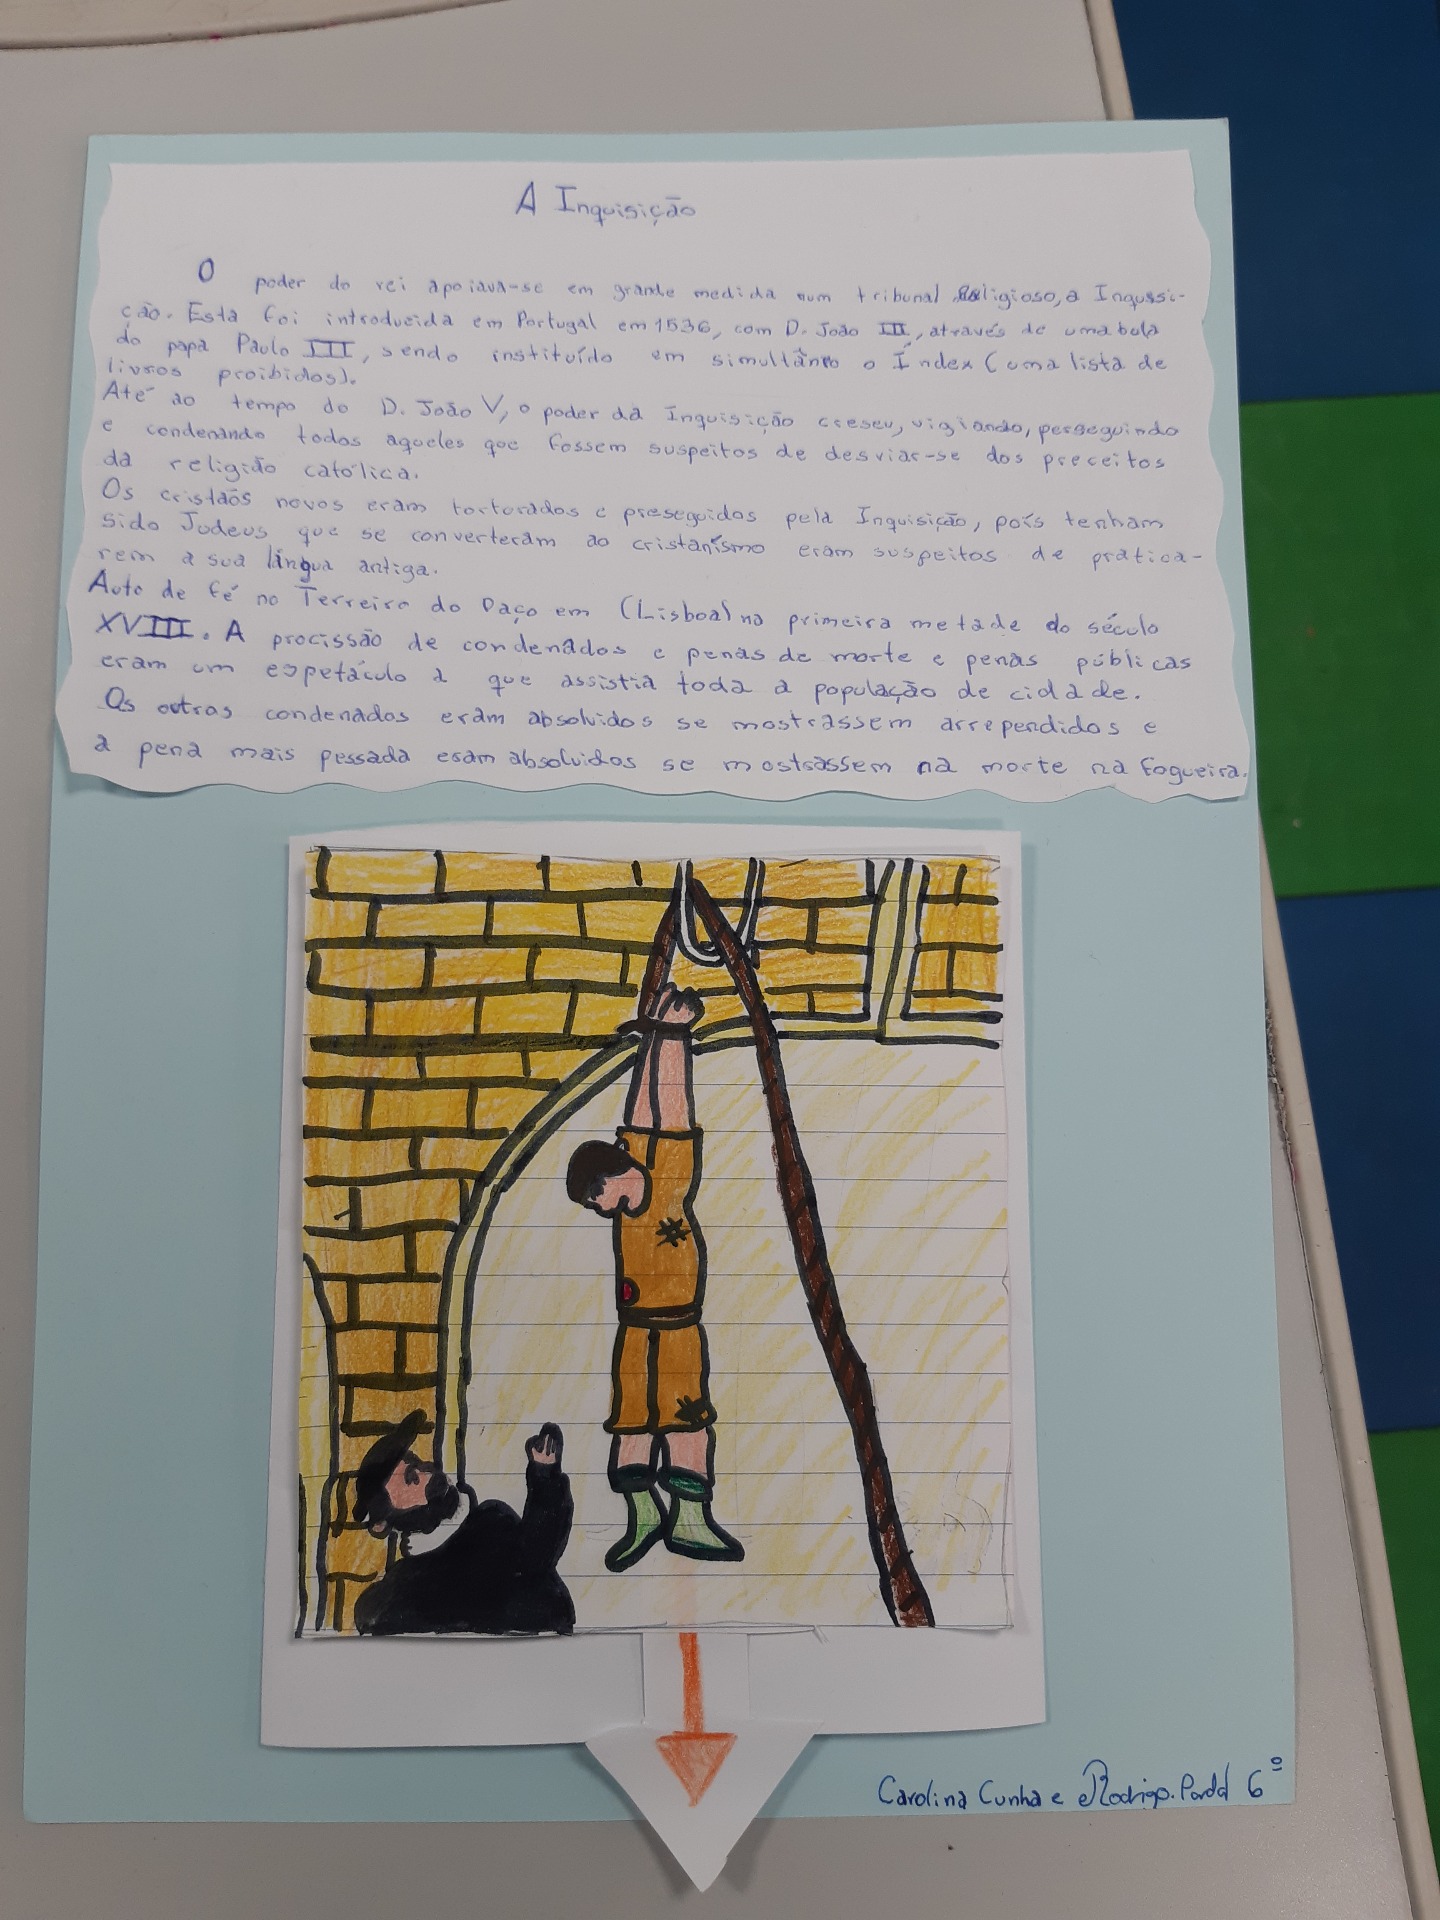 A Inquisição
O poder do rei apoiava-se em grande medida num tribunal Religioso, a Inqussi-
ção. Esta foi introducida em Portugal em 1536, com D. João III, através de uma bula
do papa Paulo III, sendo instituído em simultâno o Índex (uma lista de
livros proibidos).
Até ao tempo do D. João V, o poder da Inquisição creseu, vigiando, perseguindo
e condenando todos aqueles que fossem suspeitos de desviar-se dos preceitos
da religião católica.
Os cristãos novos eram tortorados e preseguidos pela Inquisição, pois tenham
sido Judeus que se converteram ao cristanísmo eram suspeitos de pratica-
rem a sua língua antiga.
Auto de fé no Terreiro do Paço em (Lisboa) na primeira metade do século
XVIII. A procissão de condenados e penas de morte e penas públicas
eram um espetáculo a que assistia toda a população de cidade.
Os outros condenados eram absolvidos se mostrassem arrependidos e
a pena mais pessada eram absolvidos se mostrassem na morte na fogueira.
Carolina Cunha e Rodrigo. 6º